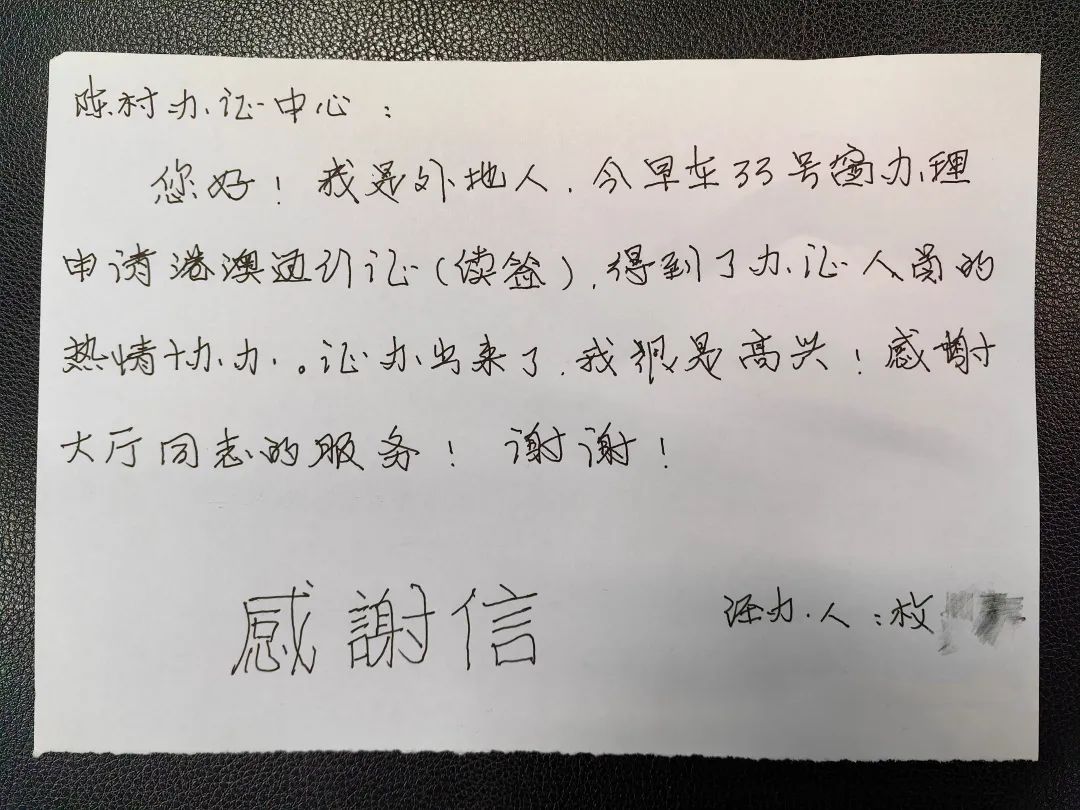 陈村办证中心：
您好！我是外地人，今早在33号窗办理
申请港澳通行证（续签），得到了办证人员的
热情协办。证办出来了，我很是高兴！感谢
大厅同志的服务！谢谢！
感謝信
经办人：